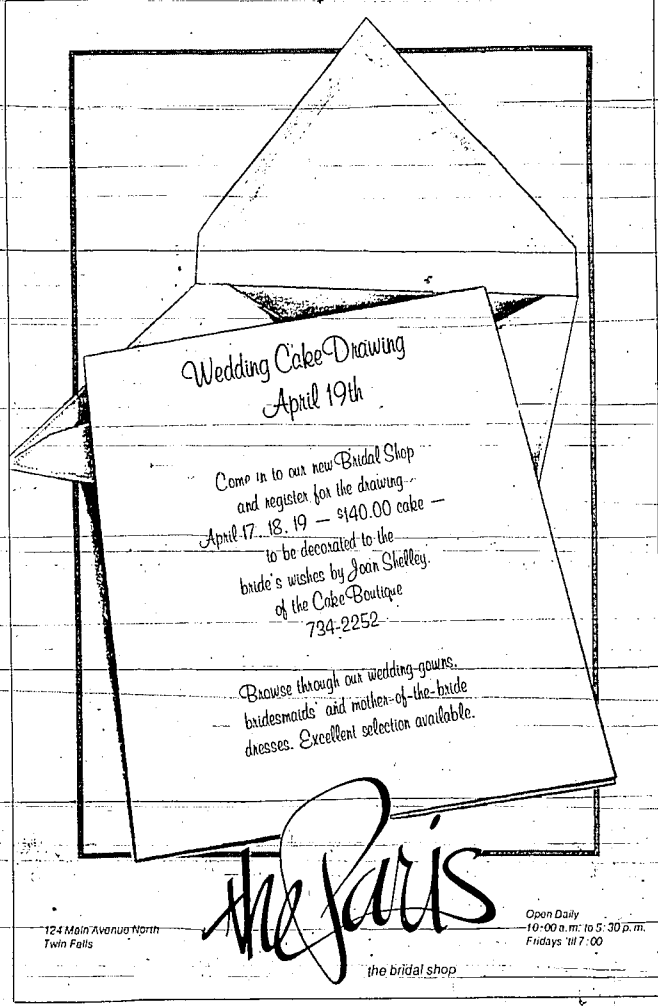 Wedding Cake Drawing
April 19th
Come in to our new Bridal Shop
and register for the drawing
April 17, 18, 19 — $140.00 cake —
to be decorated to the
bride's wishes by Joan Shelley.
of the Cake Boutique
734-2252
Browse through our wedding gowns,
bridesmaids' and mother-of-the-bride
dresses. Excellent selection available.
the Paris
the bridal shop
124 Main Avenue North
Twin Falls
Open Daily
10:00 a.m. to 5:30 p.m.
Fridays 'til 7:00